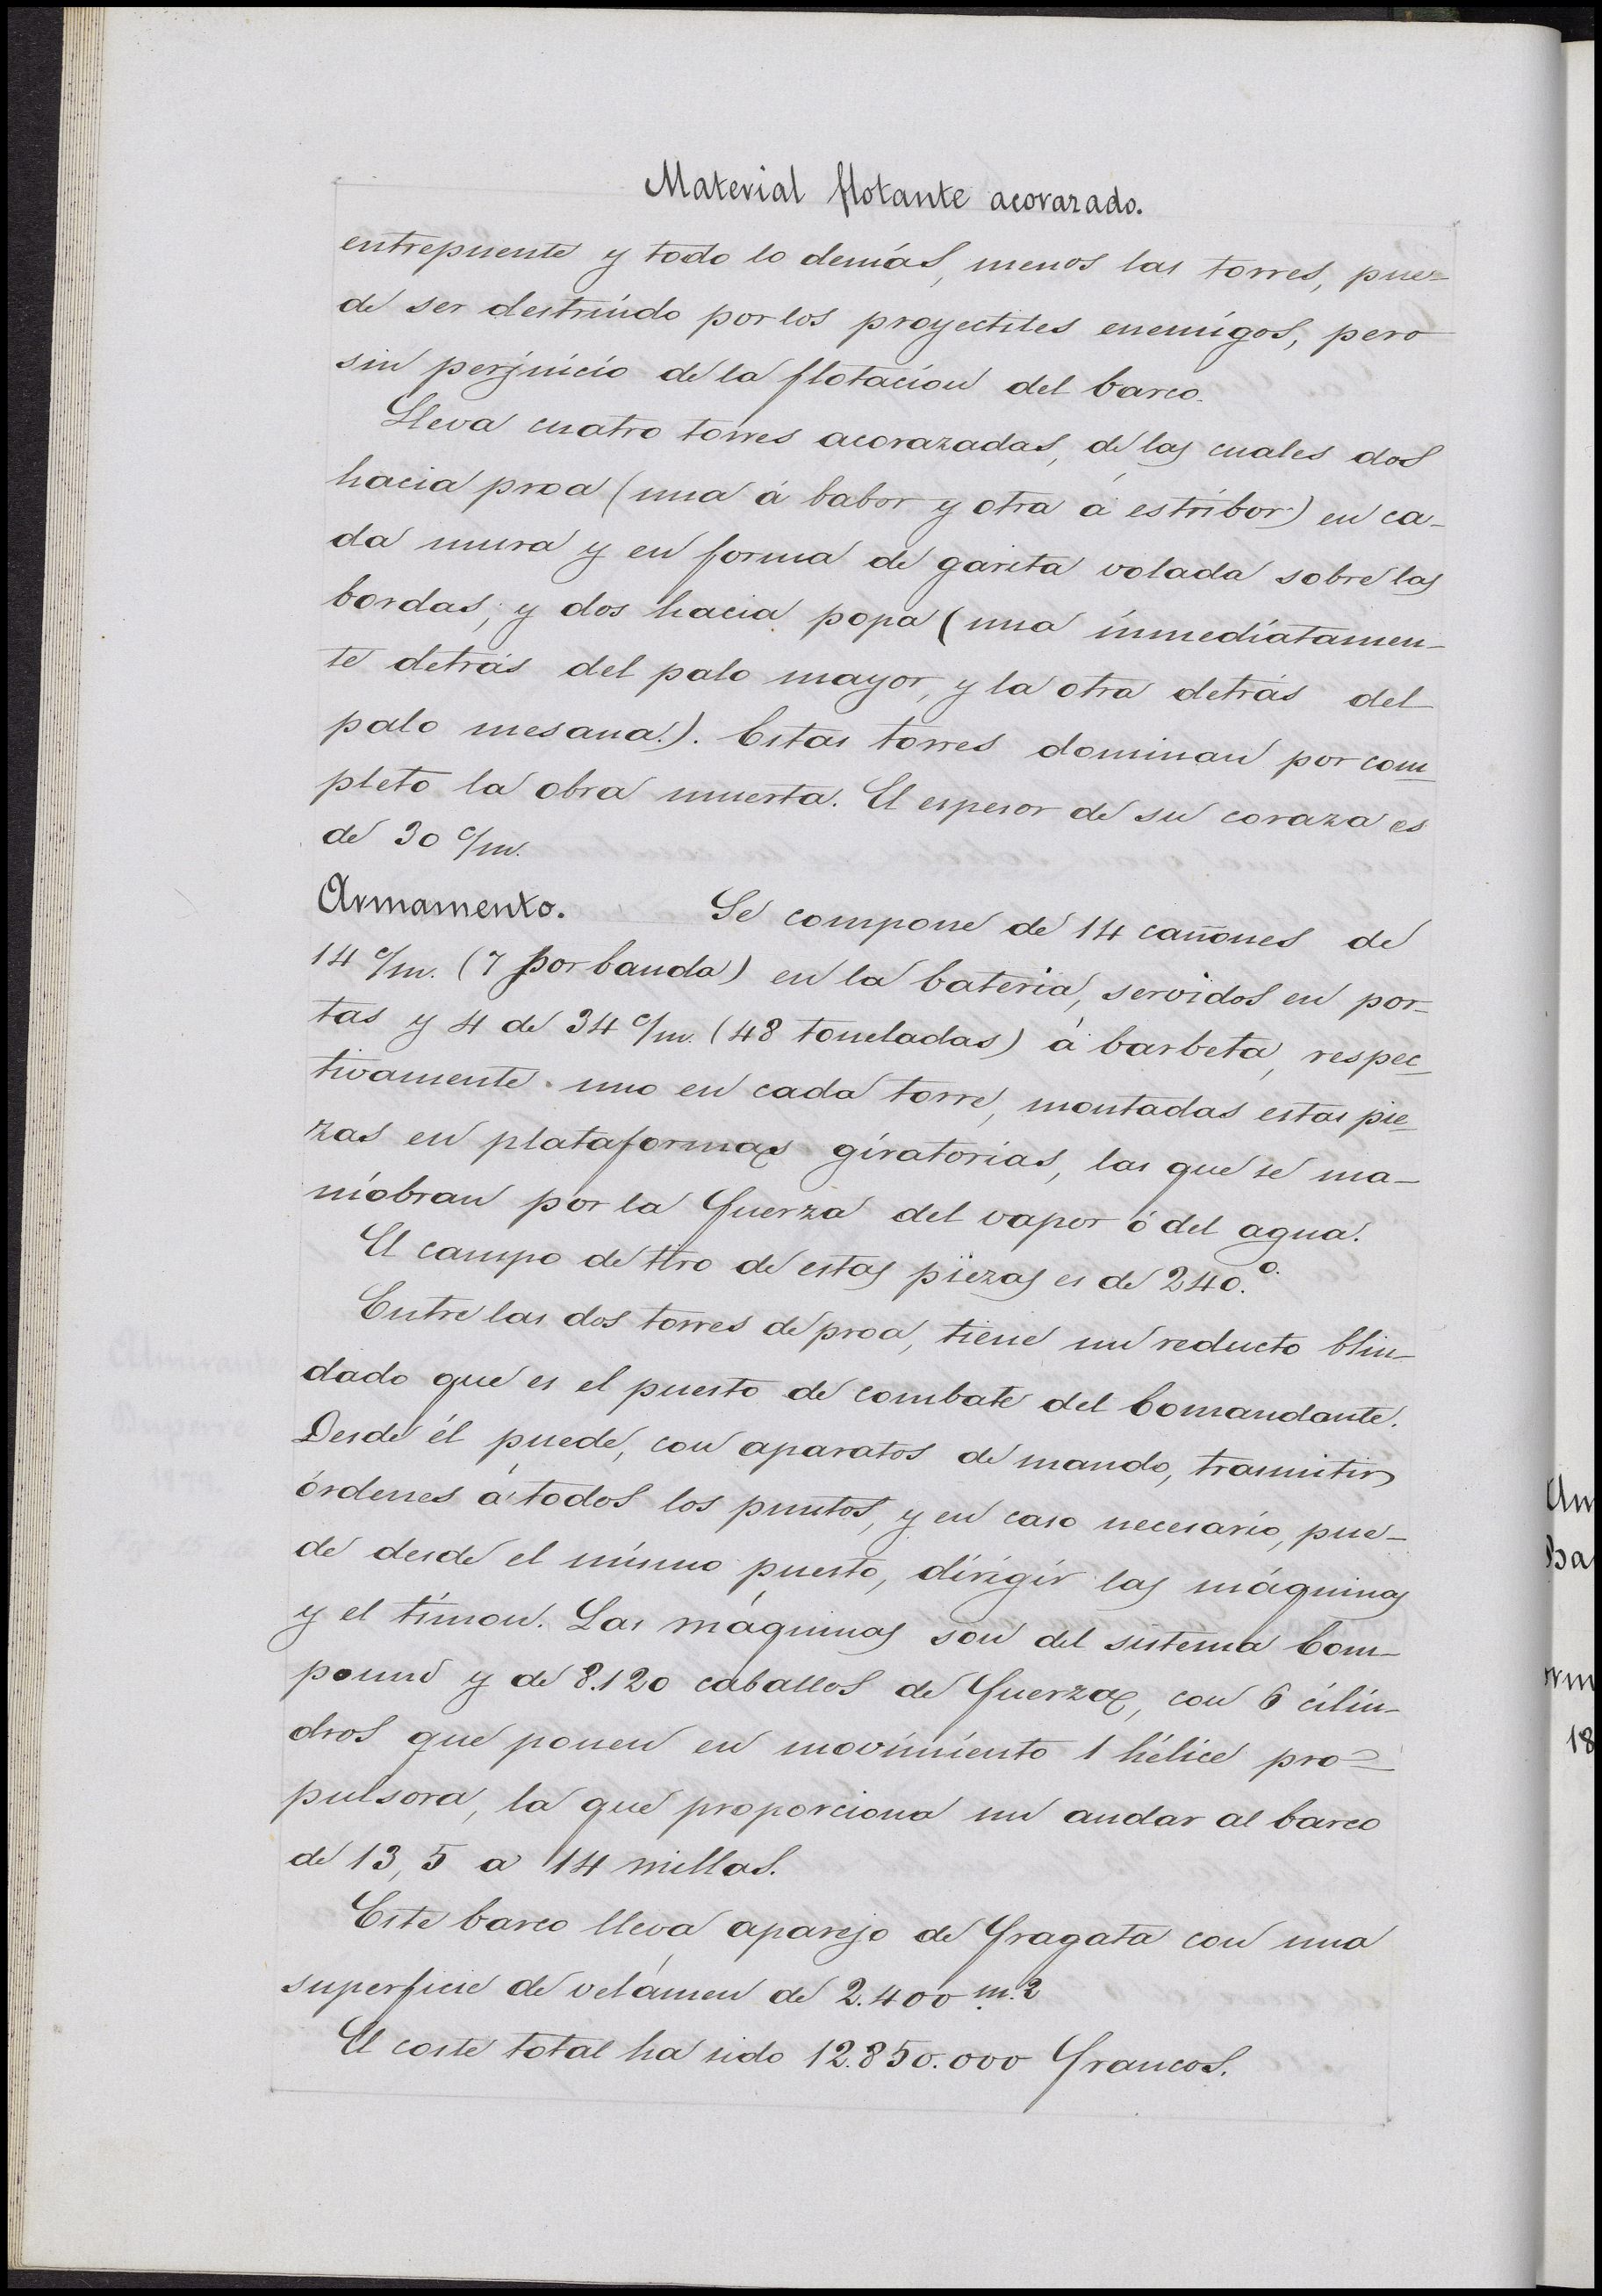 Material flotante acorazado.
entrepuente y todo lo demás, menos las torres, pue-
de ser destruido por los proyectiles enemigos, pero
sin perjuicio de la flotacion del barco.
Lleva cuatro torres acorazadas, de las cuales dos
hacia proa (una á babor y otra á estribor) en ca-
da mura y en forma de garita volada sobre las
bordas; y dos hacia popa (una inmediatamen-
te detrás del palo mayor, y la otra detrás del
palo mesana.). Estas torres dominan por com
pleto la obra muerta. El espesor de su coraza es
de 30 c/m.
Armamento. Se compone de 14 cañones de
14 c/m. (7 por banda) en la bateria, servidos en por-
tas y 4 de 34 c/m. (48 toneladas) á barbeta, respec
tivamente uno en cada torre, montadas estas pie
zas en plataformas giratorias, las que se ma-
niobran por la fuerza del vapor ó del agua.
El campo de tiro de estas piezas es de 240.º
Entre las dos torres de proa, tiene un reducto blin-
dado que es el puesto de combate del Comandante.
Desde él puede, con aparatos de mando, trasmitir
órdenes á todos los puntos, y en caso necesario, pue-
de desde el mismo puesto, dirigir las máquinas
y el timon. Las máquinas son del sistema Com-
pound y de 8.120 caballos de fuerza, con 6 cilin-
dros que ponen en movimiento 1 hélice pro-
pulsora, la que proporciona un andar al barco
de 13,5 a 14 millas.
Este barco lleva aparejo de fragata con una
superficie de velámen de 2.400 m.2
El coste total ha sido 12.850.000 francos.
Am
Ba
18